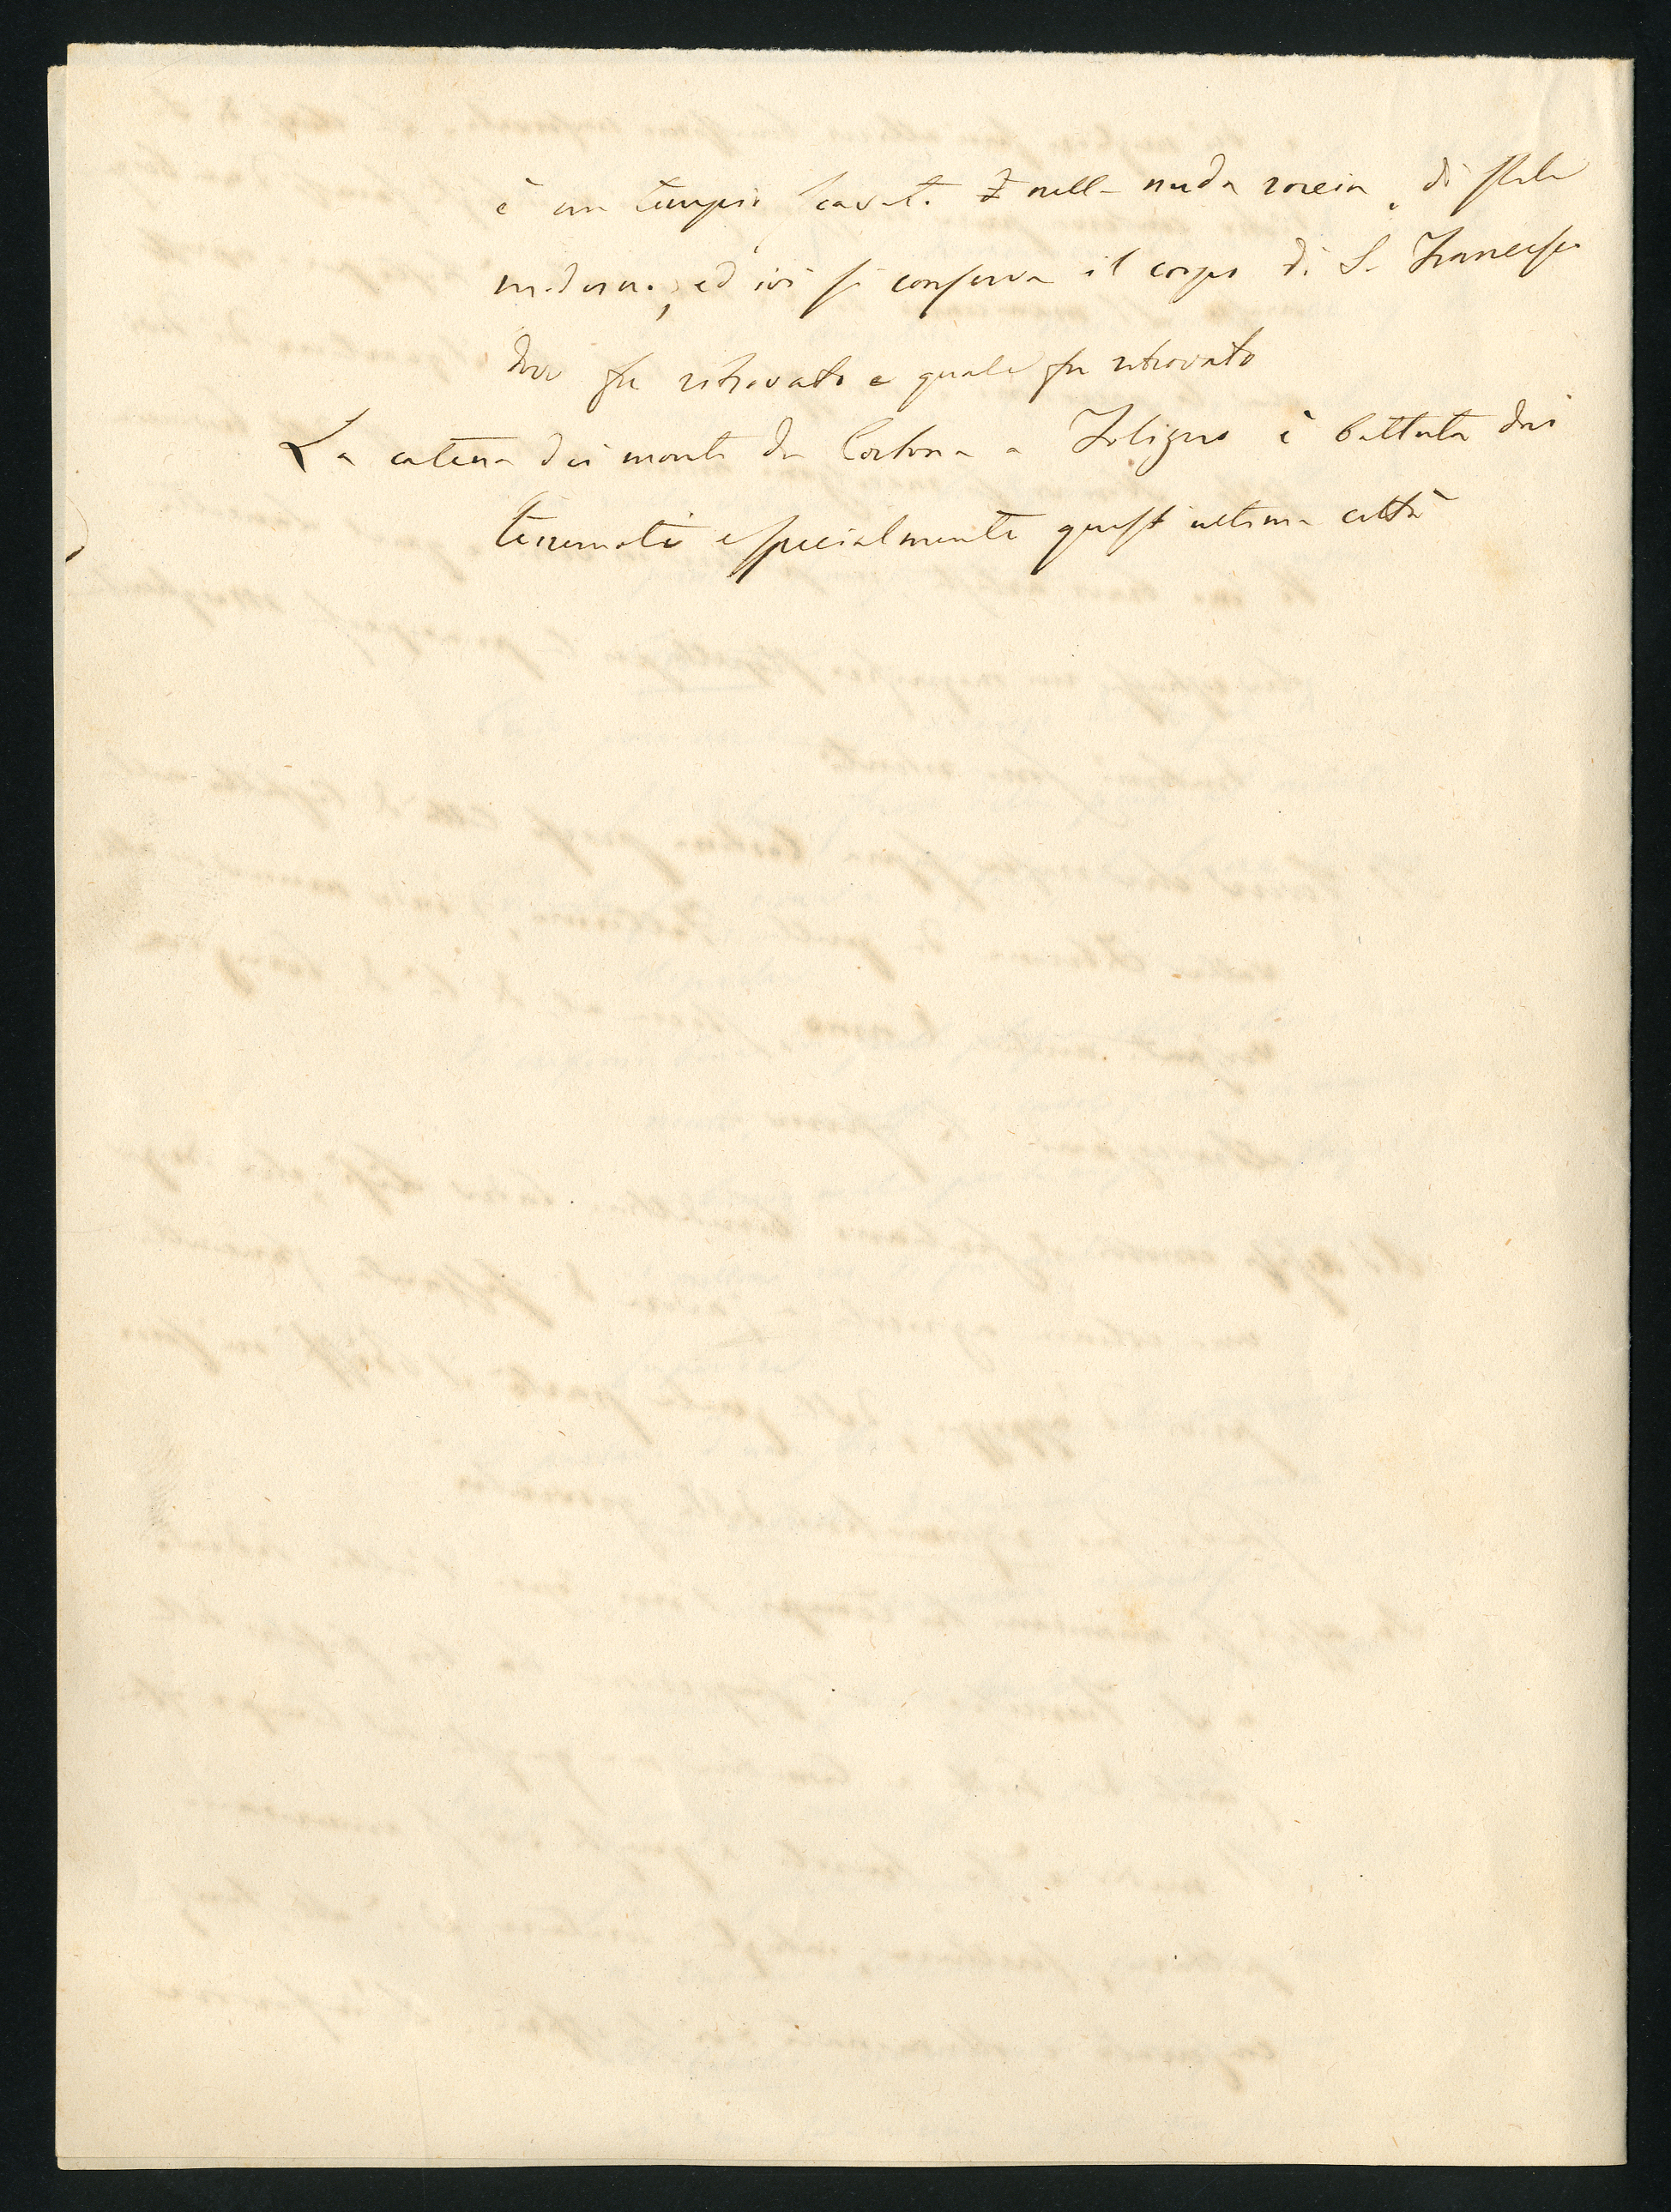 è un tempio scavato nella nuda roccia, di stile
moderno, ed ivi si conserva il corpo di S. Francesco
dove fu ritrovato e quale fu ritrovato
La catena dei monti da Cortona a Foligno è battuta dai
terremoti e specialmente quest'ultima città